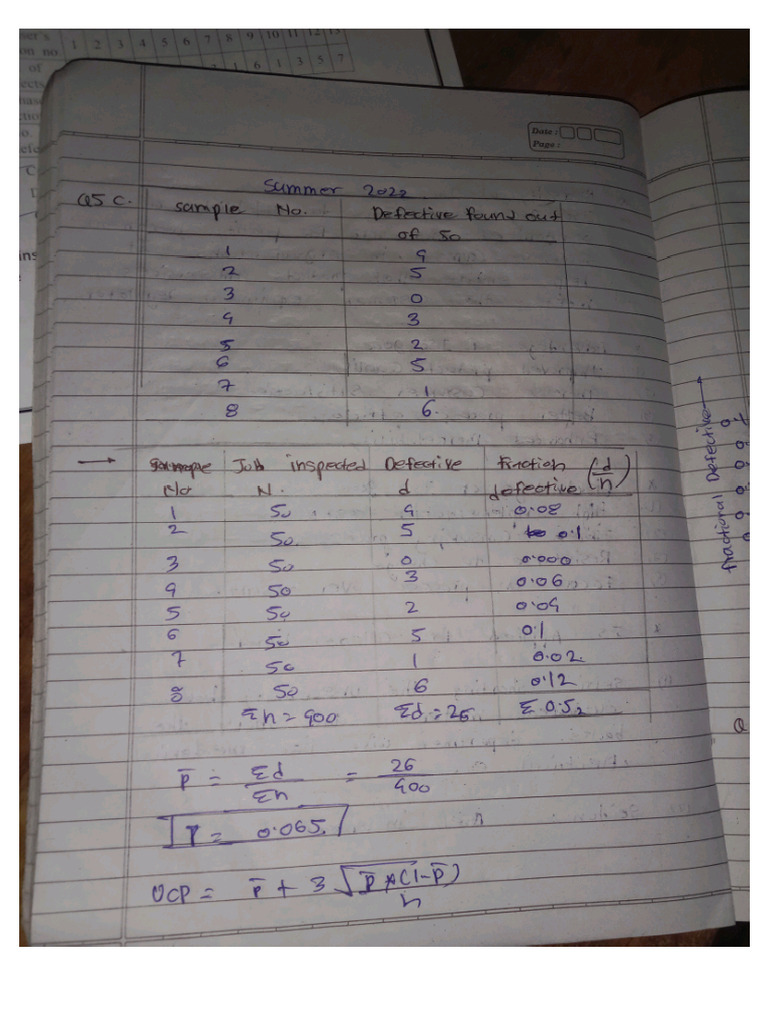 1 2 3 4 5 6 7 8 9 10 11 12 13
1 6 1 3 5 7
Date :
Page :
Summer 2022
Q5 C.
Sample No. Defective found out
of 50
1 4
2 5
3 0
4 3
5 2
6 5
7 1
8 6.
→ Sample Job inspected Defective Fraction (d/n)
No N. d defective
1 50 4 0.08
2 50. 5 0.1
3 50 0 0.000
4 50 3 0.06
5 50 2 0.04
6 50 5 0.1
7 50 1 0.02
8 50 6 0.12
Σn = 400 Σd = 26 Σ 0.52
p̄ = Σd/Σn = 26/400
P = 0.065.
UCP = p̄ + 3 √(p̄ × (1-p̄)/n)
Fractional Defective →
Q